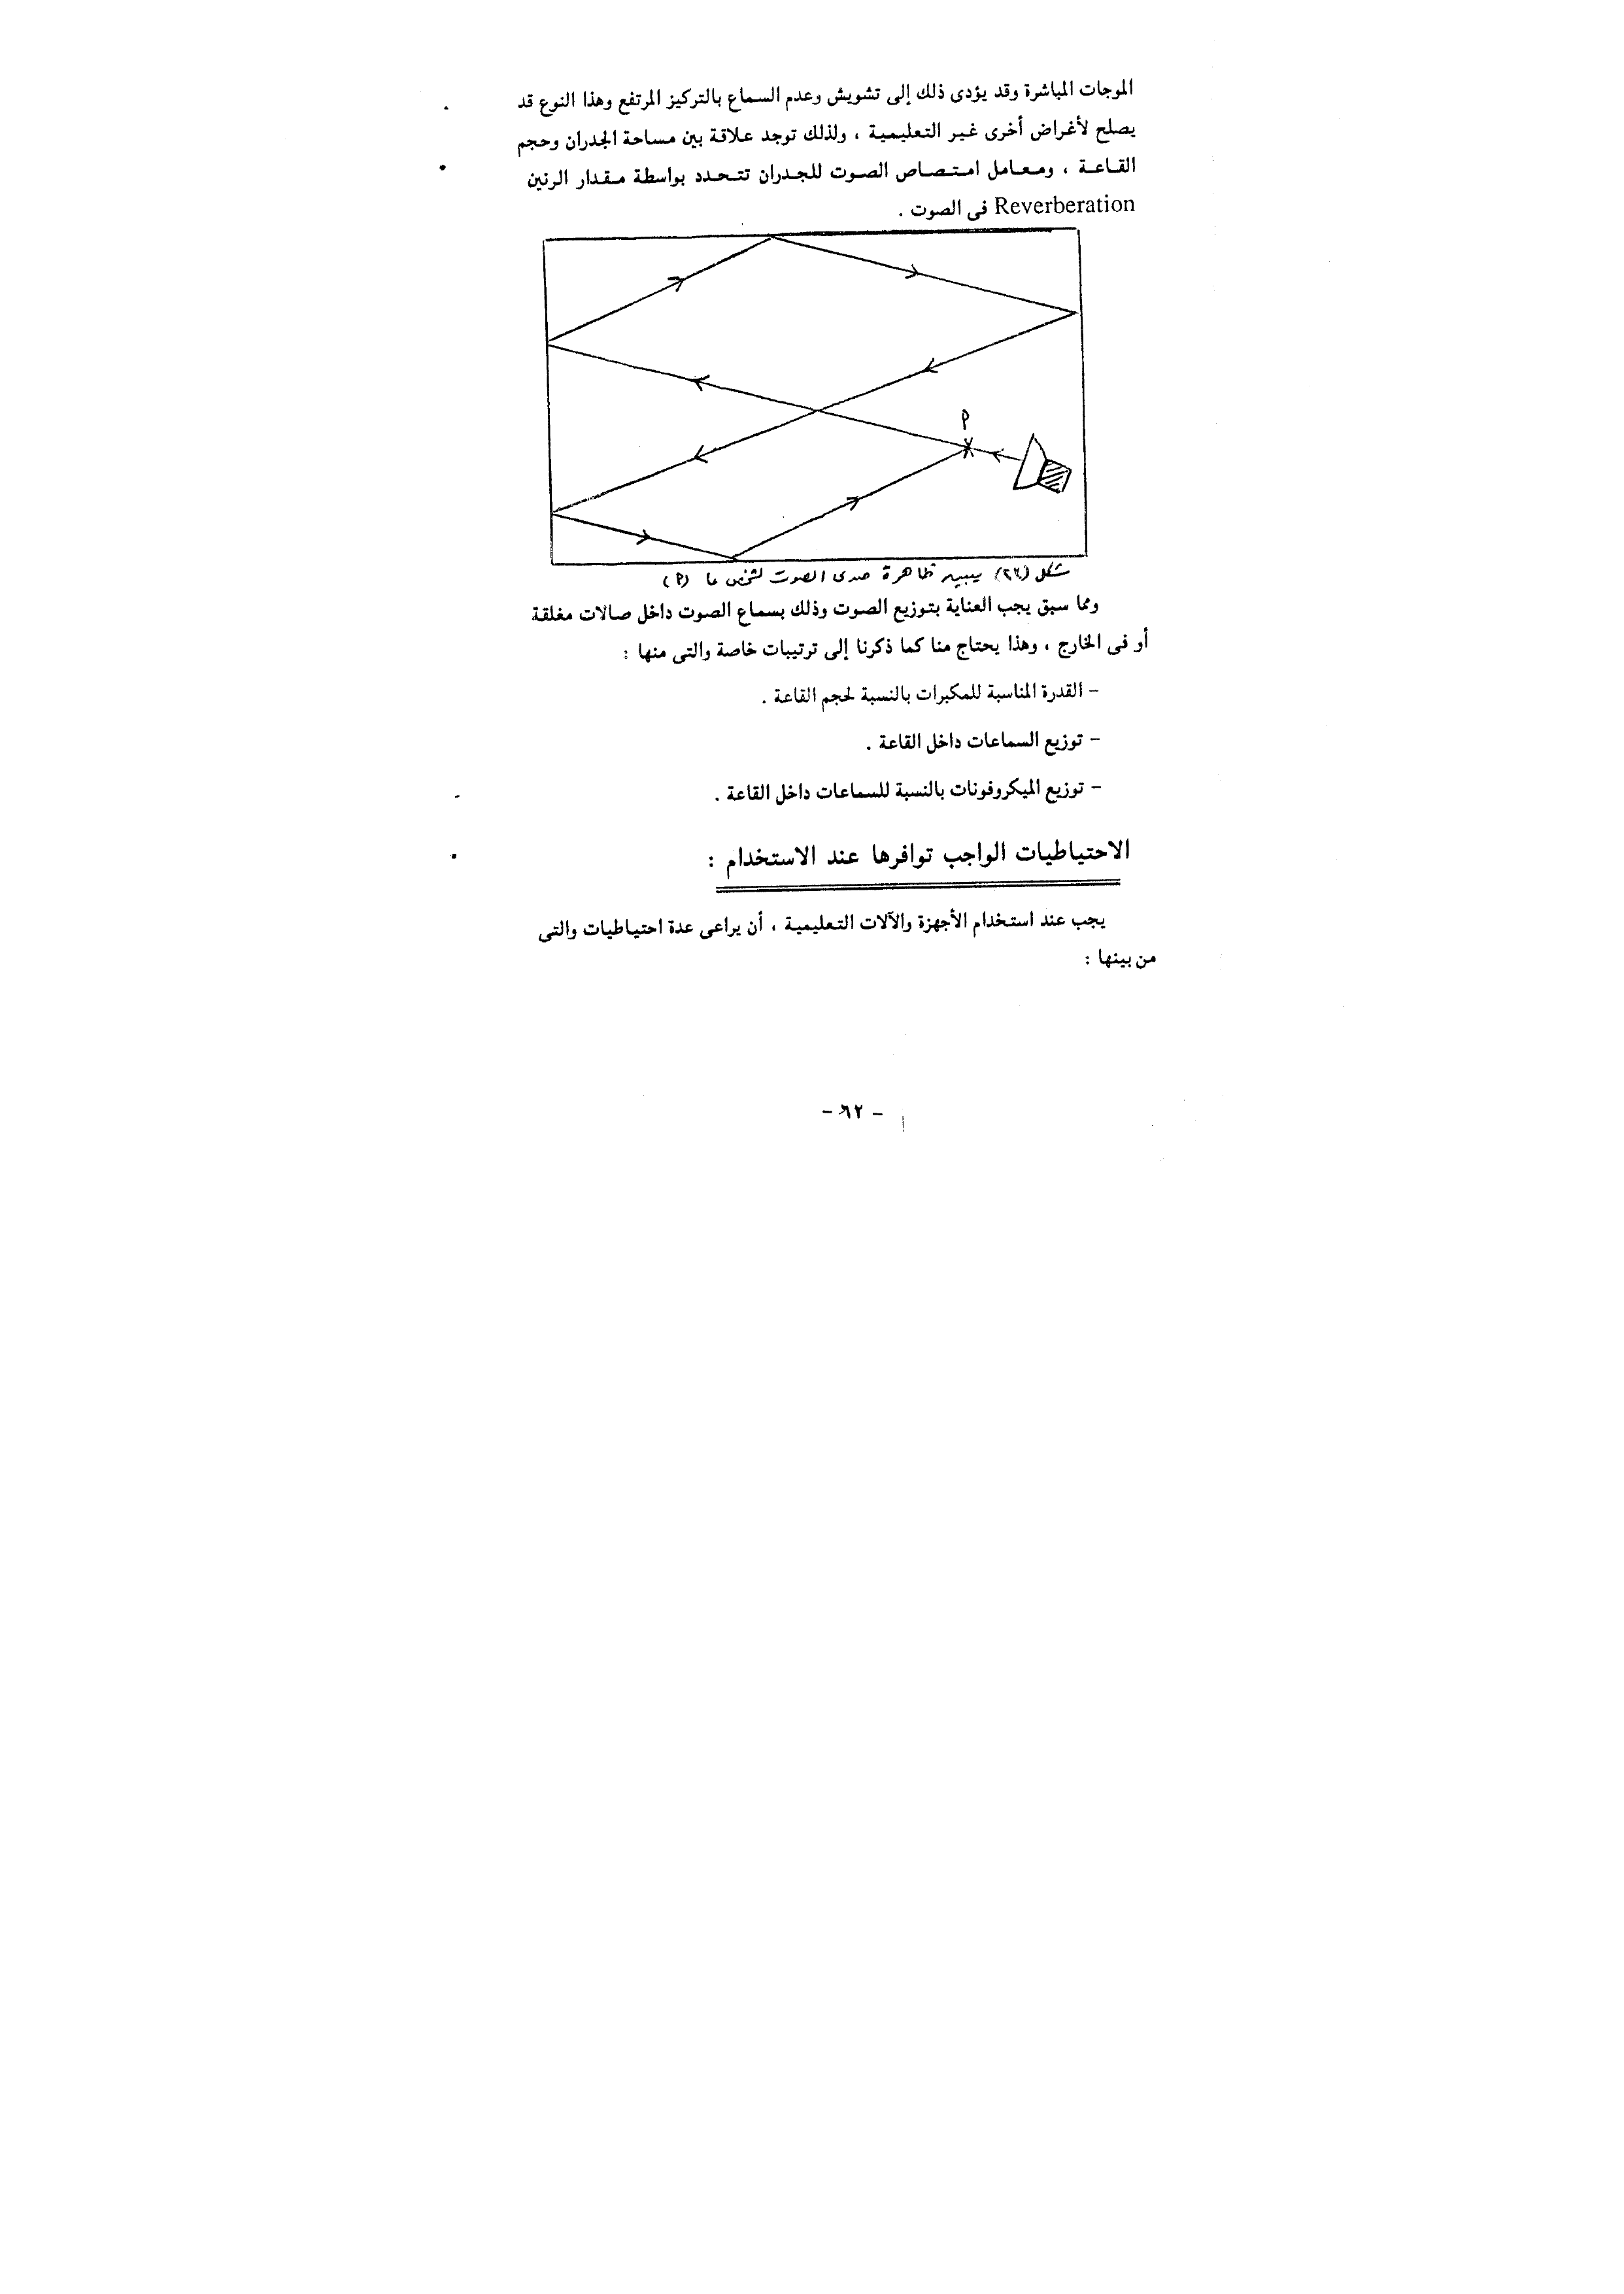 الموجات المباشرة وقد يؤدى ذلك إلى تشويش وعدم السماع بالتركيز المرتفع وهذا النوع قد
يصلح لأغراض أخرى غير التعليمية ، ولذلك توجد علاقة بين مساحة الجدران وحجم
القاعة ، ومعامل امتصاص الصوت للجدران تتحدد بواسطة مقدار الرنين
Reverberation فى الصوت .
P
شكل (٢٦) يبين ظاهرة صدى الصوت لشخص ما (P)
ومما سبق يجب العناية بتوزيع الصوت وذلك بسماع الصوت داخل صالات مغلقة
أو فى الخارج ، وهذا يحتاج منا كما ذكرنا إلى ترتيبات خاصة والتى منها :
- القدرة المناسبة للمكبرات بالنسبة لحجم القاعة .
- توزيع السماعات داخل القاعة .
- توزيع الميكروفونات بالنسبة للسماعات داخل القاعة .
الاحتياطيات الواجب توافرها عند الاستخدام :
يجب عند استخدام الأجهزة والآلات التعليمية ، أن يراعى عدة احتياطيات والتى
من بينها :
- ٦٢ -